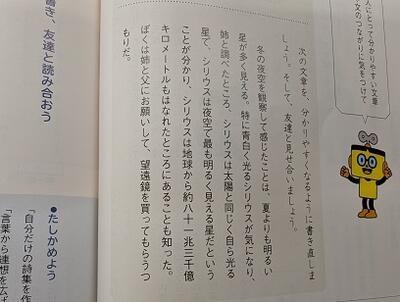 人にとって分かりやすい文章
文のつながりに気をつけて
次の文章を、分かりやすくなるように書き直しま
しょう。そして、友達と見せ合いましょう。
冬の夜空を観察して感じたことは、夏よりも明るい
星が多く見える。特に青白く光るシリウスが気になり、
姉と調べたところ、シリウスは太陽と同じく自ら光る
星で、シリウスは夜空で最も明るく見える星だという
ことが分かり、シリウスは地球から約八十一兆三千億
キロメートルもはなれたところにあることも知った。
ぼくは姉と父にお願いして、望遠鏡を買ってもらうつ
もりだ。
書き、友達と読み合おう
●たしかめよう
「自分だけの詩集を作
「言葉から連想を広げ